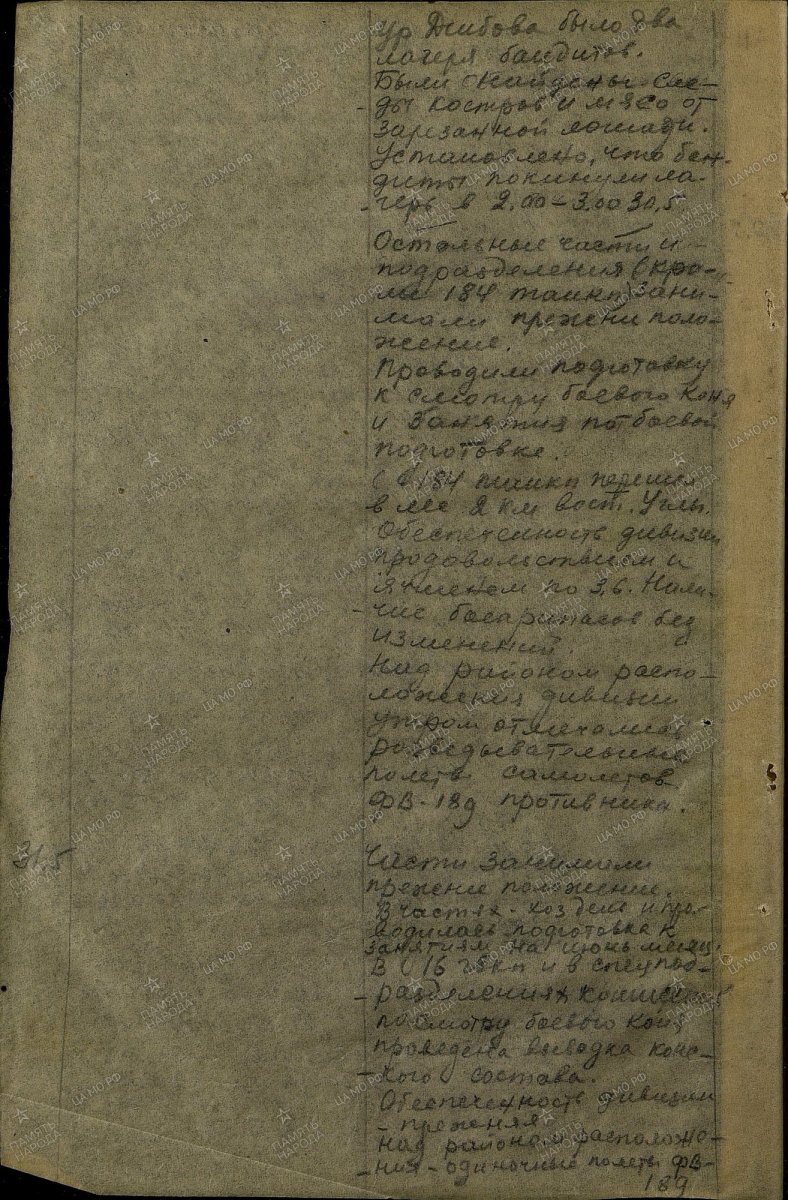 ур Дибова было два
лагеря бандитов.
Были найдены сле-
ды костров и мясо от
зарезанной лошади.
Установлено, что бан-
диты покинули ла-
герь в 2.00-3.00 30.5
Остальные части и
подразделения (кро-
ме 184 танкп) зани-
мали прежни поло-
жение.
Проводили подготовку
к смотру боевого коня
и занятия по боевой
подготовке.
184 танкп перешел
в лес 2 км вост. Углы.
Обеспеченность дивизии
продовольствием и
ячменем по 3.6. Нали-
чие боеприпасов без
изменений.
Над районом распо-
ложения дивизии
утром отмечались
разведывательные
полеты самолетов
ФВ-189 противника.
31.5
Части занимали
прежне положение.
В частях - хоз дела и про-
водилась подготовка к
занятиям на июнь месяц.
В 16 гвкп и в спецпод-
разделениях комиссией
по смотру боевого коня
проведена выводка конс-
кого состава.
Обеспеченность дивизии
- прежняя
Над районом расположе-
ния - одиночные полеты ФВ-
189